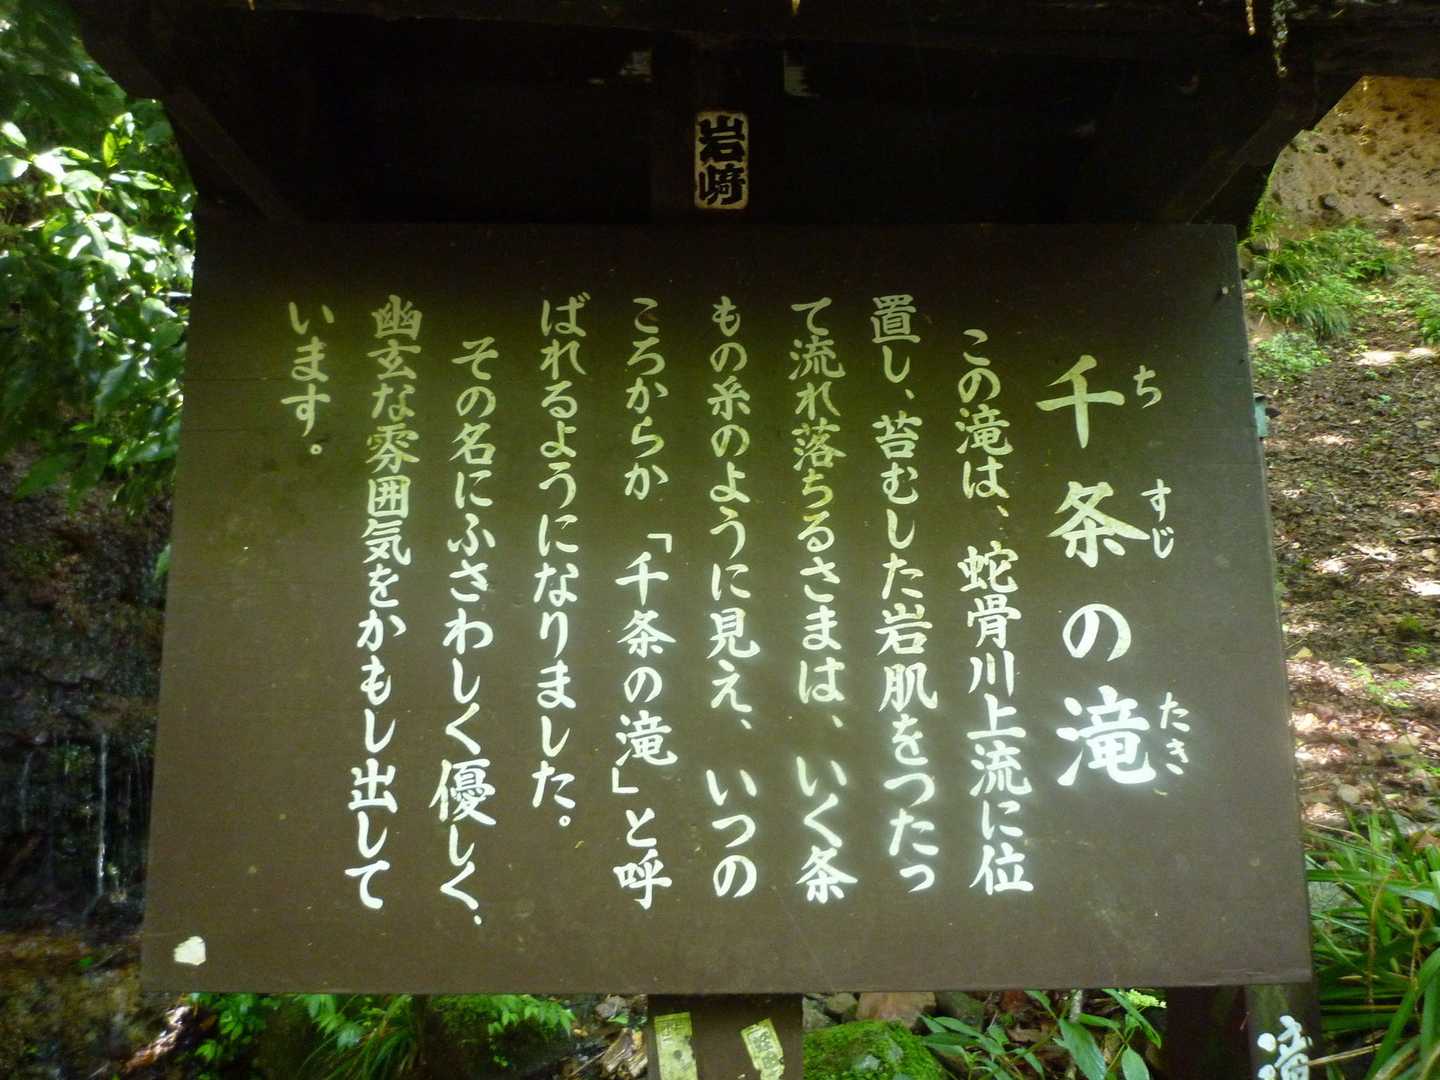 岩﨑
千条の滝
ちすじたき
この滝は、蛇骨川上流に位
置し、苔むした岩肌をつたっ
て流れ落ちるさまは、いく条
もの糸のように見え、いつの
ころからか「千条の滝」と呼
ばれるようになりました。
その名にふさわしく優しく、
幽玄な雰囲気をかもし出して
います。
滝